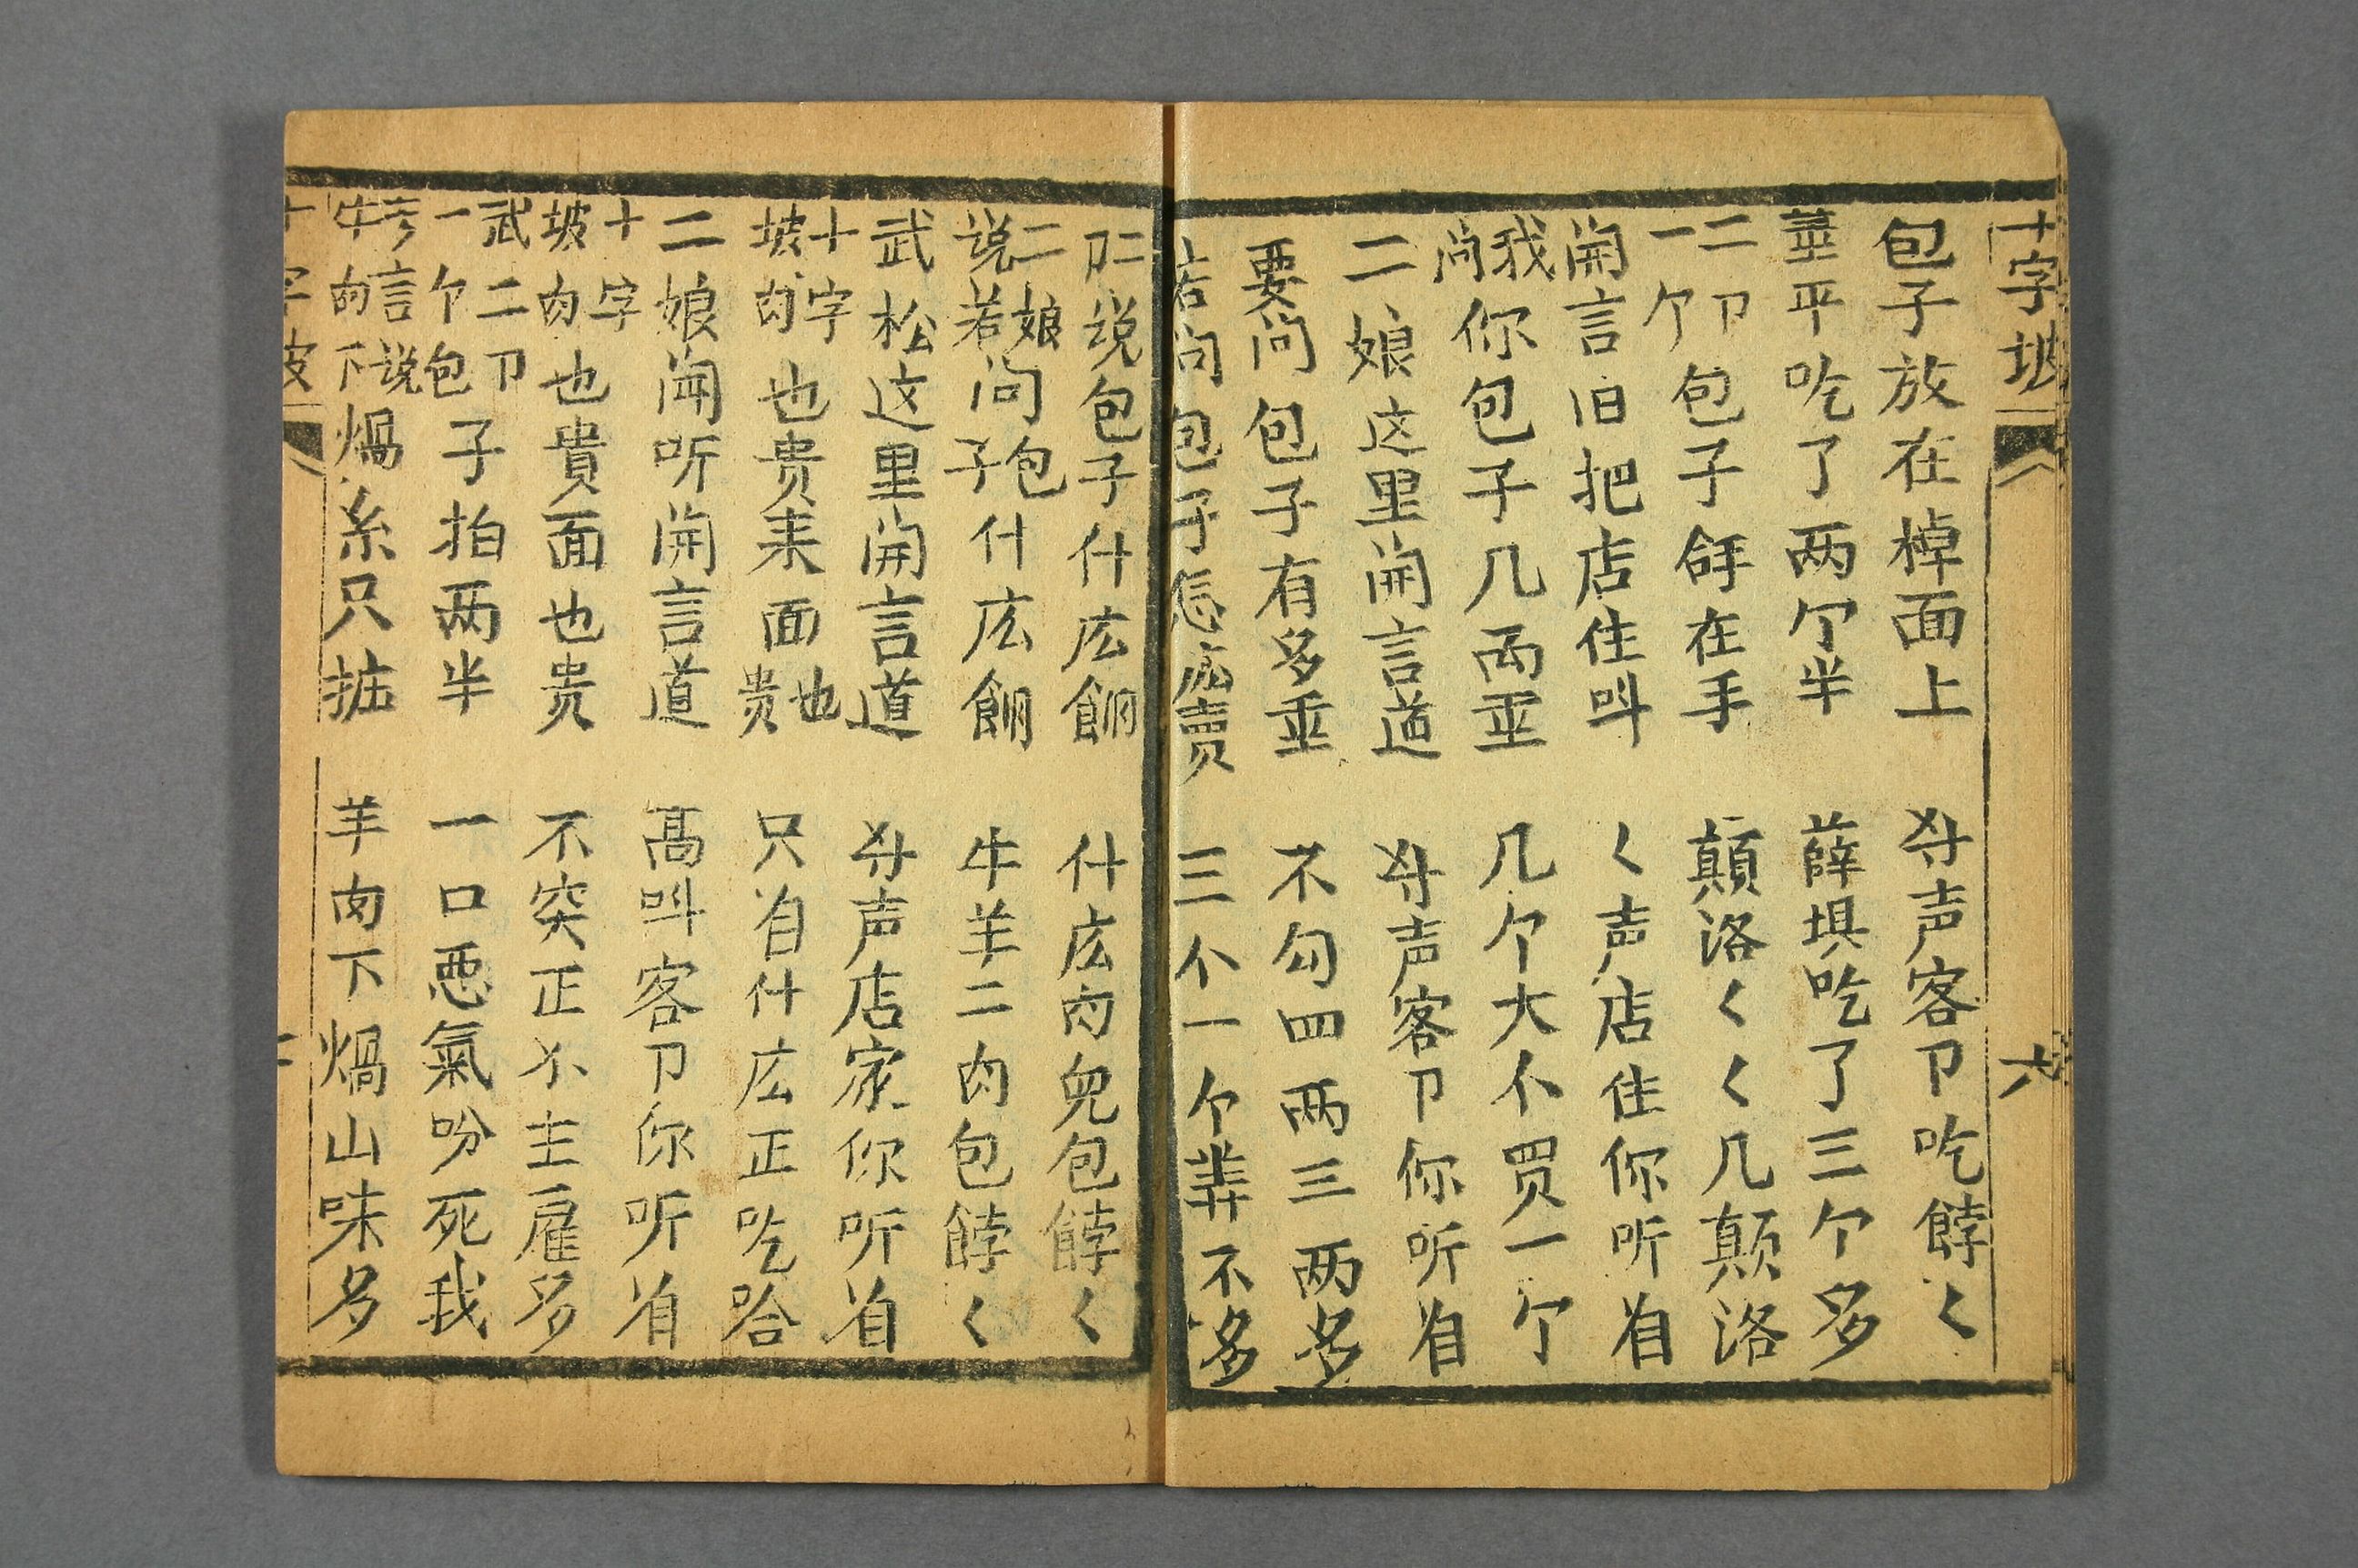 十字坡 六
包子放在棹面上 ⺈声客卩吃餑く
平吃了两个半 薛埧吃了三个多
二卩一个包子𢪔在手 顛洛くく几颠洛
開言旧把店住呌 く声店住你听
我问你包子几两 几个大不買一个
二娘这里開言道 声客卩你听
要问包子有多重 不勾四两三两多
若问包子怎庅賣 三个一个不多
二卩说包子什庅餡 什庅肉兜包餑く
二娘说若问包子什庅餡 牛羊二肉包餑く
武松这里開言道 声店家你听
十字坡肉也贵来面也贵 只什庅正吃哈
二娘闻听開言道 髙呌客卩你听
十字坡肉也貴面也贵 不突正不主雇多
武二卩一个包子拍两半 一口悪氣吩死我
言说牛肉下煱糸只掂 羊肉下煱山味多
十字坡